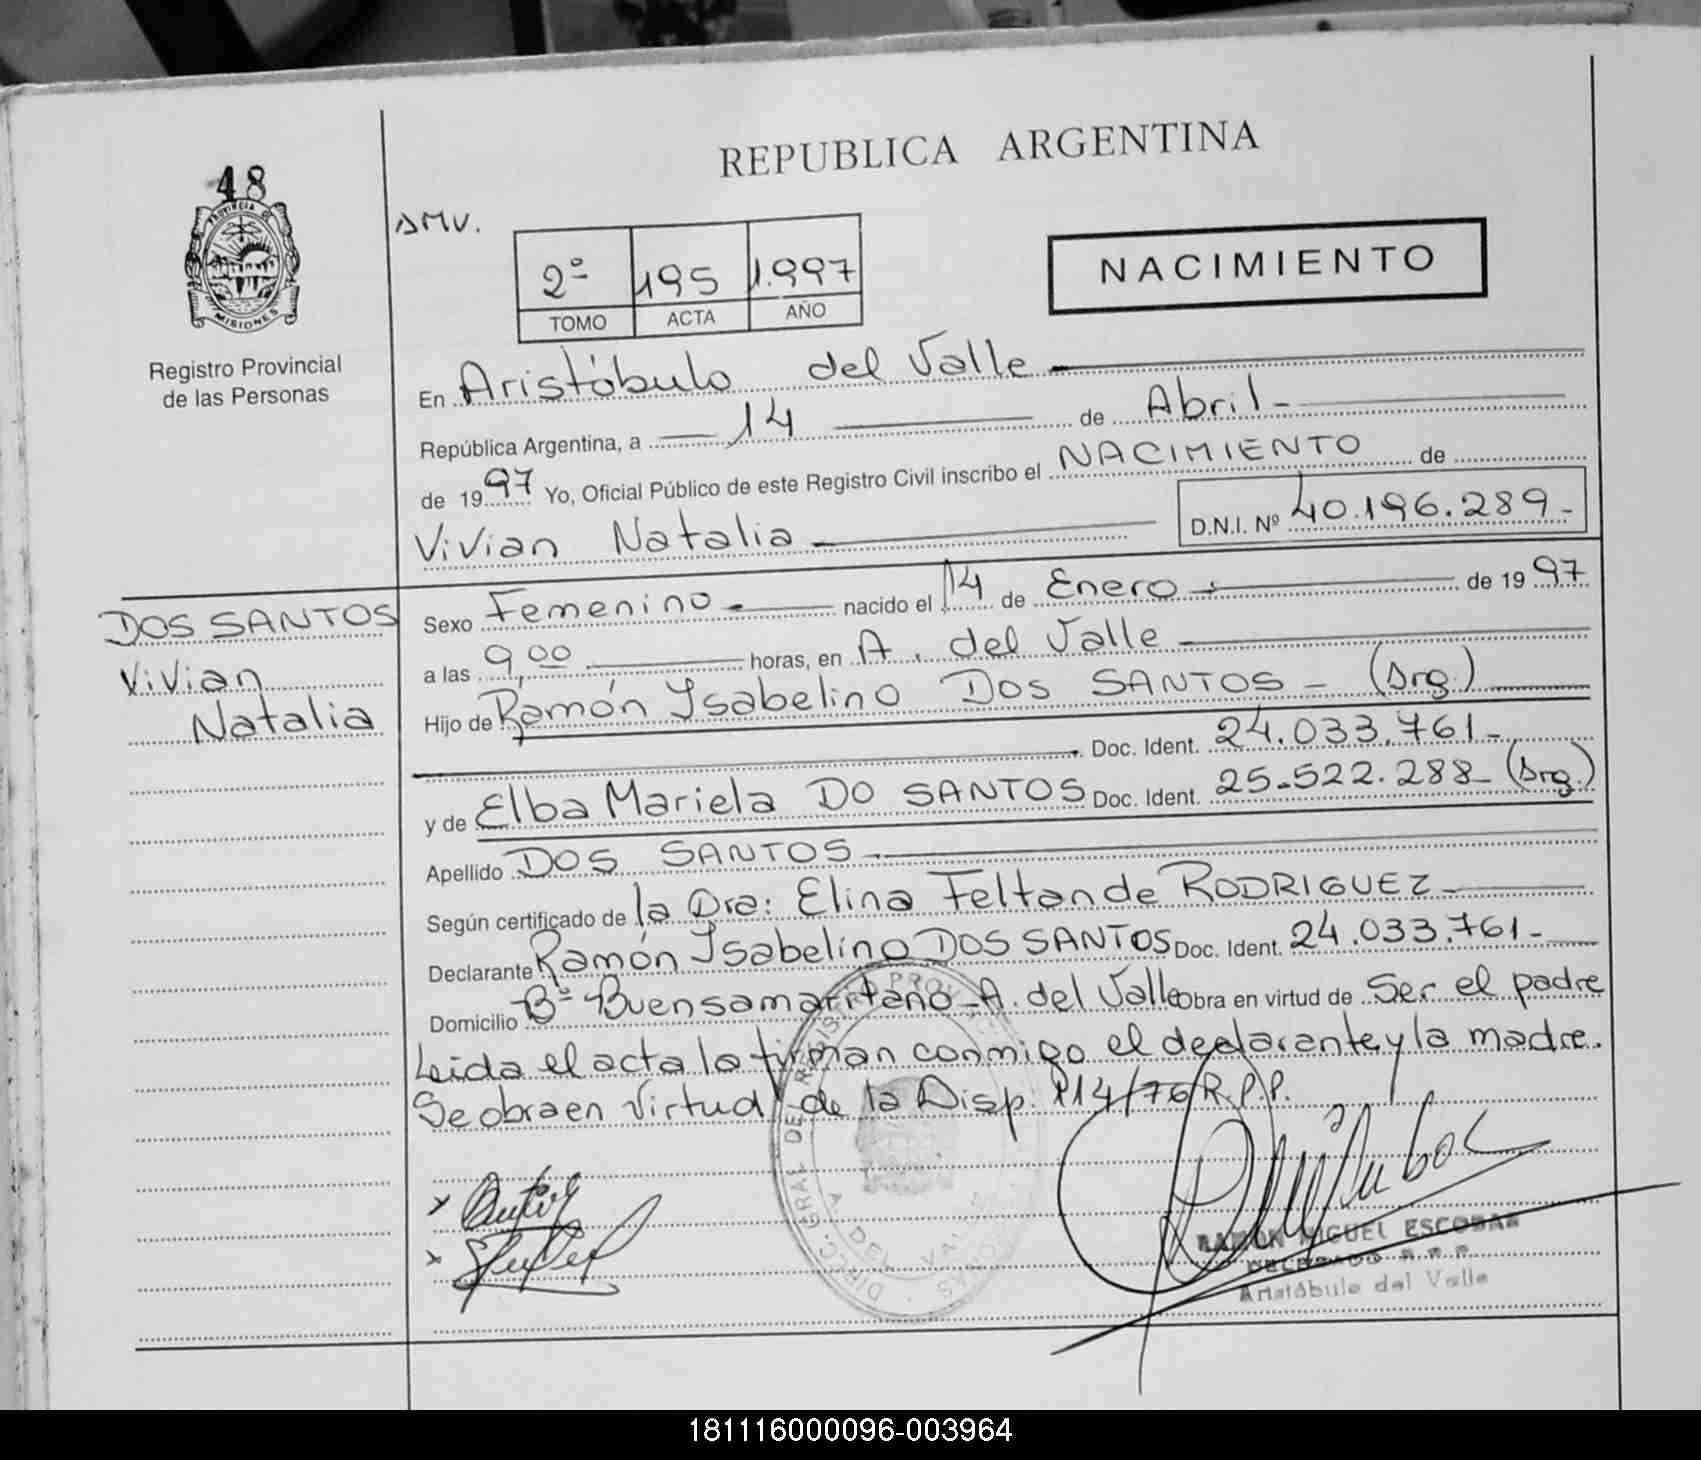 48
PROVINCIA DE
MISIONES
Registro Provincial
de las Personas
REPUBLICA ARGENTINA
2º 195 1.997
TOMO ACTA AÑO
NACIMIENTO
En Aristóbulo del Valle
República Argentina, a 14 de Abril
de 1997 Yo, Oficial Público de este Registro Civil inscribo el NACIMIENTO de
Vivian Natalia D.N.I. Nº 40.196.289-
DOS SANTOS
Vivian
Natalia
Sexo Femenino nacido el 14 de Enero de 1997
a las 9,00 horas, en A. del Valle
Hijo de Ramón Ysabelino DOS SANTOS - (Arg.)
Doc. Ident. 24.033.761-
y de Elba Mariela DO SANTOS Doc. Ident. 25.522.288- (Arg.)
Apellido DOS SANTOS
Según certificado de la Dra: Elina Feltan de RODRIGUEZ
Declarante Ramón Ysabelino DOS SANTOS Doc. Ident. 24.033.761-
Domicilio Bº Buensamaritano - A. del Valle Obra en virtud de Ser el padre
Leida el acta la firman conmigo el declarante y la madre.
Se obra en virtud de la Disp. 114/76 R.P.P.
RAMON MIGUEL ESCOBAR
DELEGADO R.P.P.
Aristóbulo del Valle
181116000096-003964